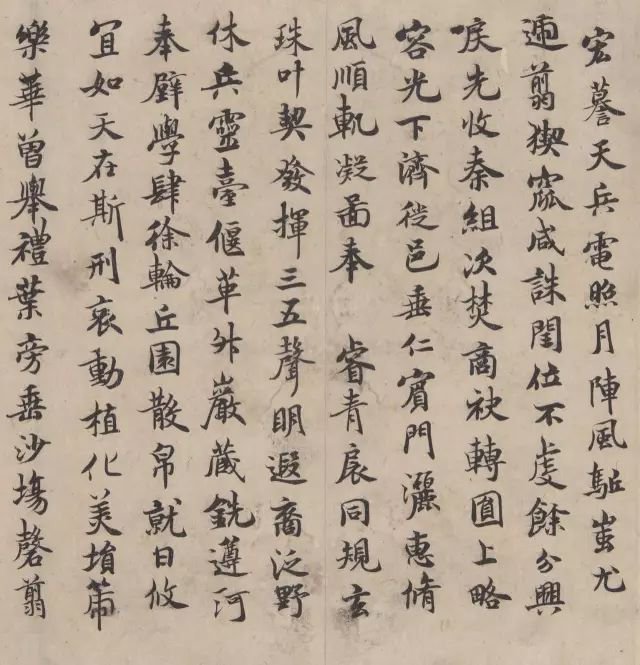 宏謩天兵電照月陣風駈蚩尤
迊翦猰窳咸誅閏位不虔餘分興
唳先收秦組次焚商袂轉圓上略
容光下濟徙邑垂仁賓門灑惠脩
風順軌凝圖奉 睿青扆同規玄
珠叶契發揮三五聲明遐裔泛野
休兵靈臺偃革舛巖蔵銑遵河
奉璧學肆徐輪丘園散帛就日攸
宜如天在斯刑哀動植化美堉箾
樂華曾舉禮葉旁垂沙塲罄翦